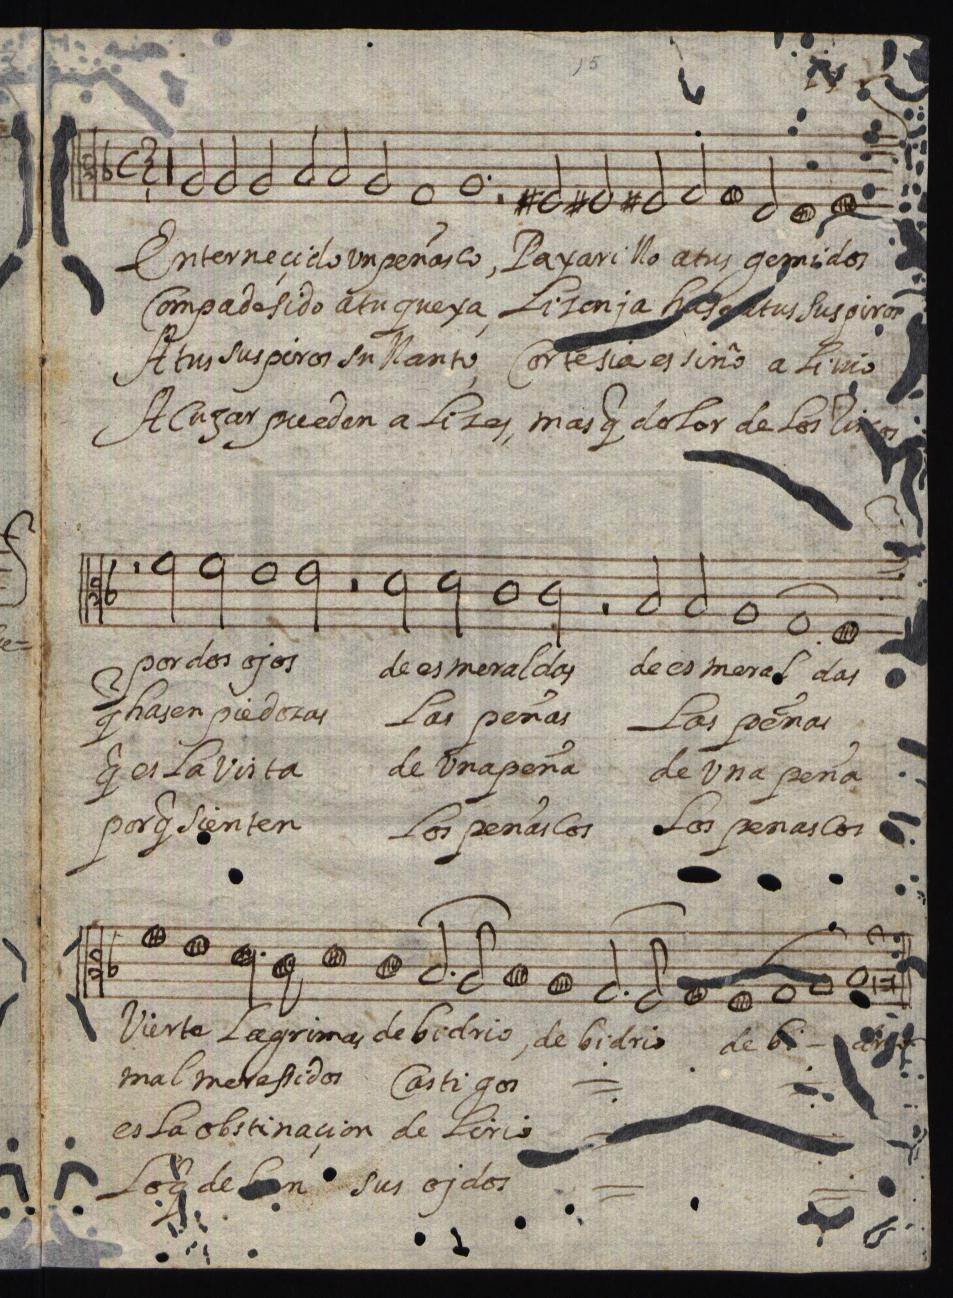 15
Enterneçido un peñasco, Paxarillo a tus gemidos
Compadesido a tu quexa, Lizonja hase a tus suspiros
A tus suspiros su llanto, Cortesia es sino aLivio
Acuzar pueden a Lizes, mas q̃ dolor de los
por dos ojos de esmeraldas de esmeraldas
q̃ hasen piedozas Las peñas Las peñas
q̃ es La vista de una peña de una peña
porq̃ sienten Los peñascos Los penascos
Vierte Lagrimas de bidrio, de bidrio de bi-
mal meresidos Castigos = =
es La obstinaçion de Lirio = =
Loq̃ deben sus ojdos = =